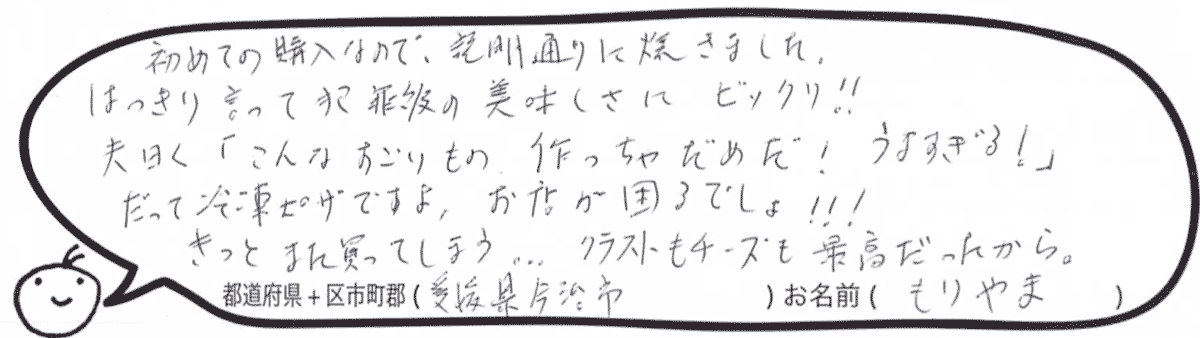 初めての購入なので、説明通りに焼きました。
はっきり言って犯罪級の美味しさに ビックリ!!
夫曰く「こんな すごいもの 作っちゃだめだ! うますぎる!」
だって冷凍ピザですよ, お店が困るでしょ!!!
きっとまた買ってしまう… クラストもチーズも最高だったから。
都道府県+区市町郡(愛媛県今治市)お名前(もりやま)